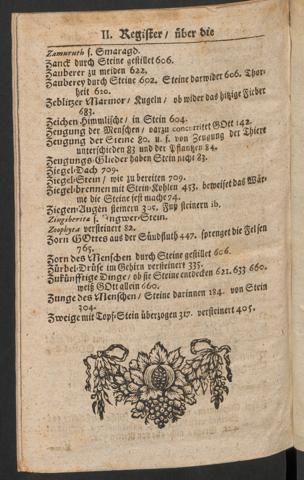 II. Register / über die
Zamuruth s. Smaragd.
Zanck durch Steine gestillet 606.
Zauberer zu meiden 622.
Zauberey durch Steine 602. Steine darwider 606. Thor-
heit 620.
Zeblitzer Marmor / Kugeln / ob wider das hitzige Fieber
683.
Zeichen Himmlische / in Stein 604.
Zeugung der Menschen / darzu concurritet GOtt 142.
Zeugung der Steine 80. u. f. von Zeugung der Thiere
unterschieden 83 und der Pflantzen 84.
Zeugungs-Glieder haben Stein nicht 83.
Ziegel-Dach 709.
Ziegel-Stein / wie zu bereiten 709.
Ziegel-brennen mit Stein-Kohlen 453. beweiset das Wär-
me die Steine fest mache 74.
Ziegen-Augen steinern 305. Fuß steinern ib.
Zingiberera s. Ingwer-Stein.
Zoophyta versteinert 82.
Zorn GOttes aus der Sündfluth 447. sprenget die Felsen
765.
Zorn des Menschen durch Steine gestillet 606.
Zürbel-Drüse im Gehirn versteinert 335.
Zukünfftige Dinge / ob sie Steine entdecken 621. 633 660.
weiß GOtt allein 660.
Zunge des Menschen / Steine darinnen 184. von Stein
304.
Zweige mit Topf-Stein überzogen 317. versteinert 405.